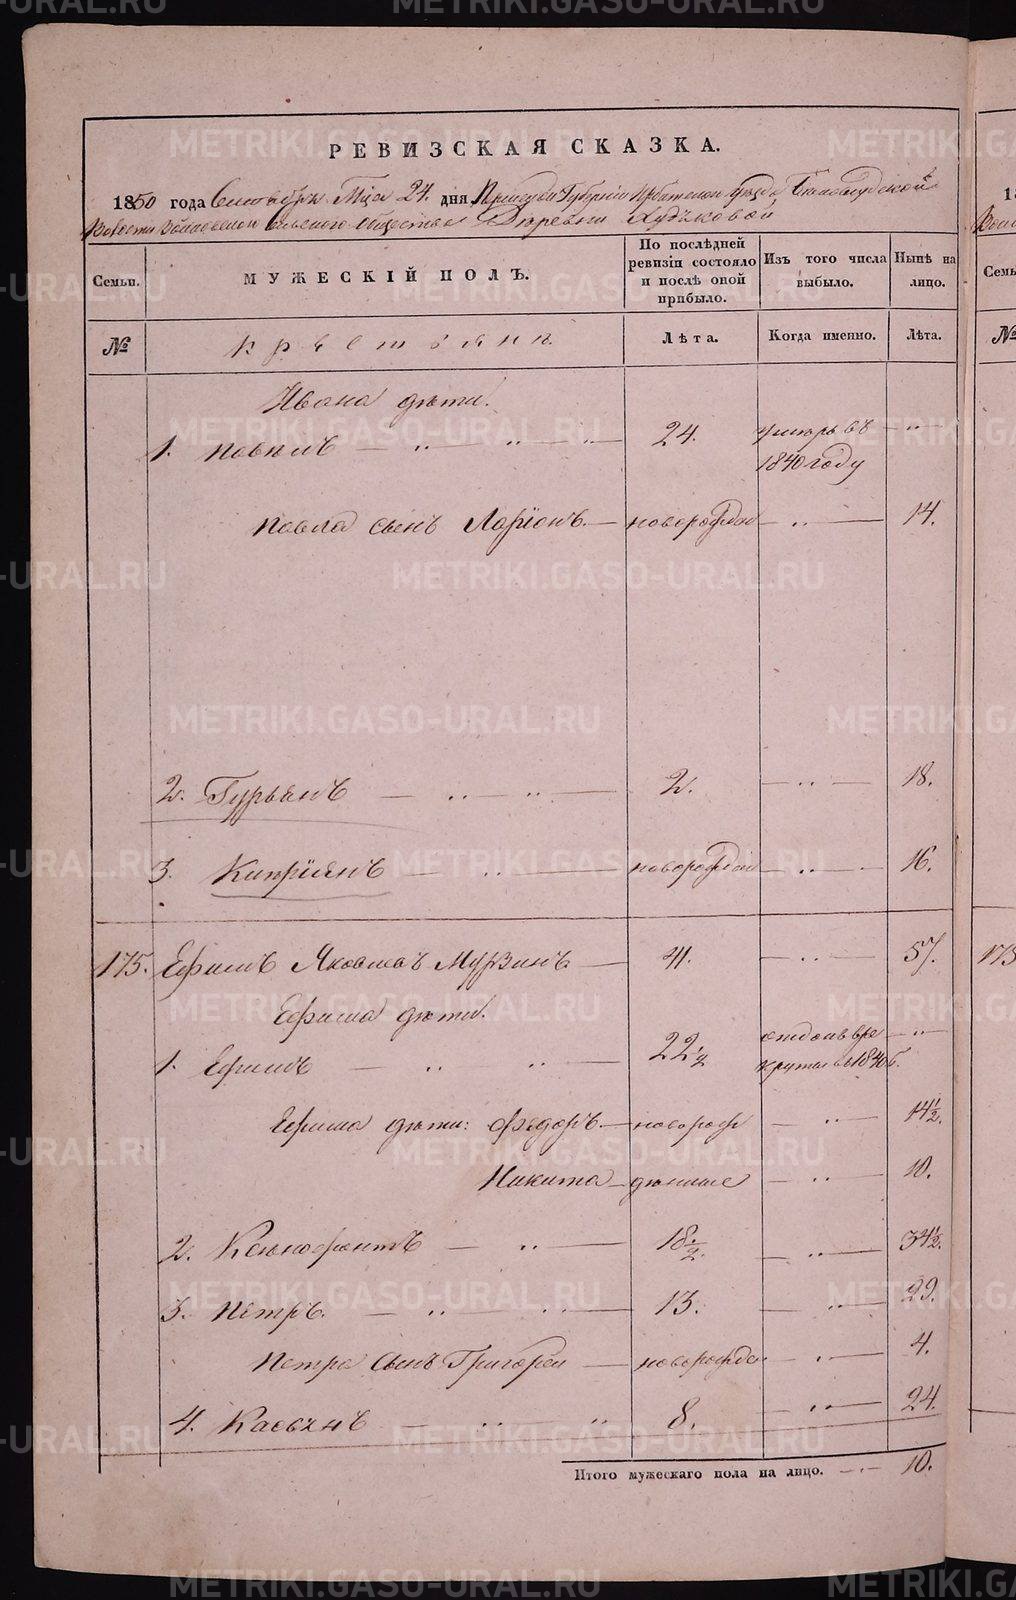 РЕВИЗСКАЯ СКАЗКА.
1850 года Сентября М-ца 24. дня Пермской Губернии Ирбитскаго Уезда Белослудской
Волости сельскаго общества Деревни
Семьи.
МУЖЕСКІЙ ПОЛЪ.
По послѣдней ревизіи состояло и послѣ оной прибыло.
Изъ того числа выбыло.
Нынѣ на лицо.
№
Крестьяне
Лѣта.
Когда именно.
Лѣта.
Ивана дѣти.
1. Павелъ — 24. умеръ въ 1840 году —
Павла сынъ Ларіонъ — новорожден — 14.
2. Гурьянъ — 2. — 18.
3. Кипріянъ — новорожден — 16.
175. Ефимъ Яковлевъ Мурзинъ — 41. — 57.
Ефима дѣти.
1. Ефимъ — 22 1/2 отданъ в рекруты въ 1840 г. —
Ефима дѣти: Федоръ — новорож — 14 1/2.
Никита — — 10.
2. Ксенофонтъ — 18 1/2. — 34 1/2.
3. Петръ. — 13. — 29.
Петра сынъ Григорей — новорожде — 4.
4. Касьянъ — 8. — 24.
Итого мужескаго пола на лицо. — 10.
175
METRIKI.GASO-URAL.RU